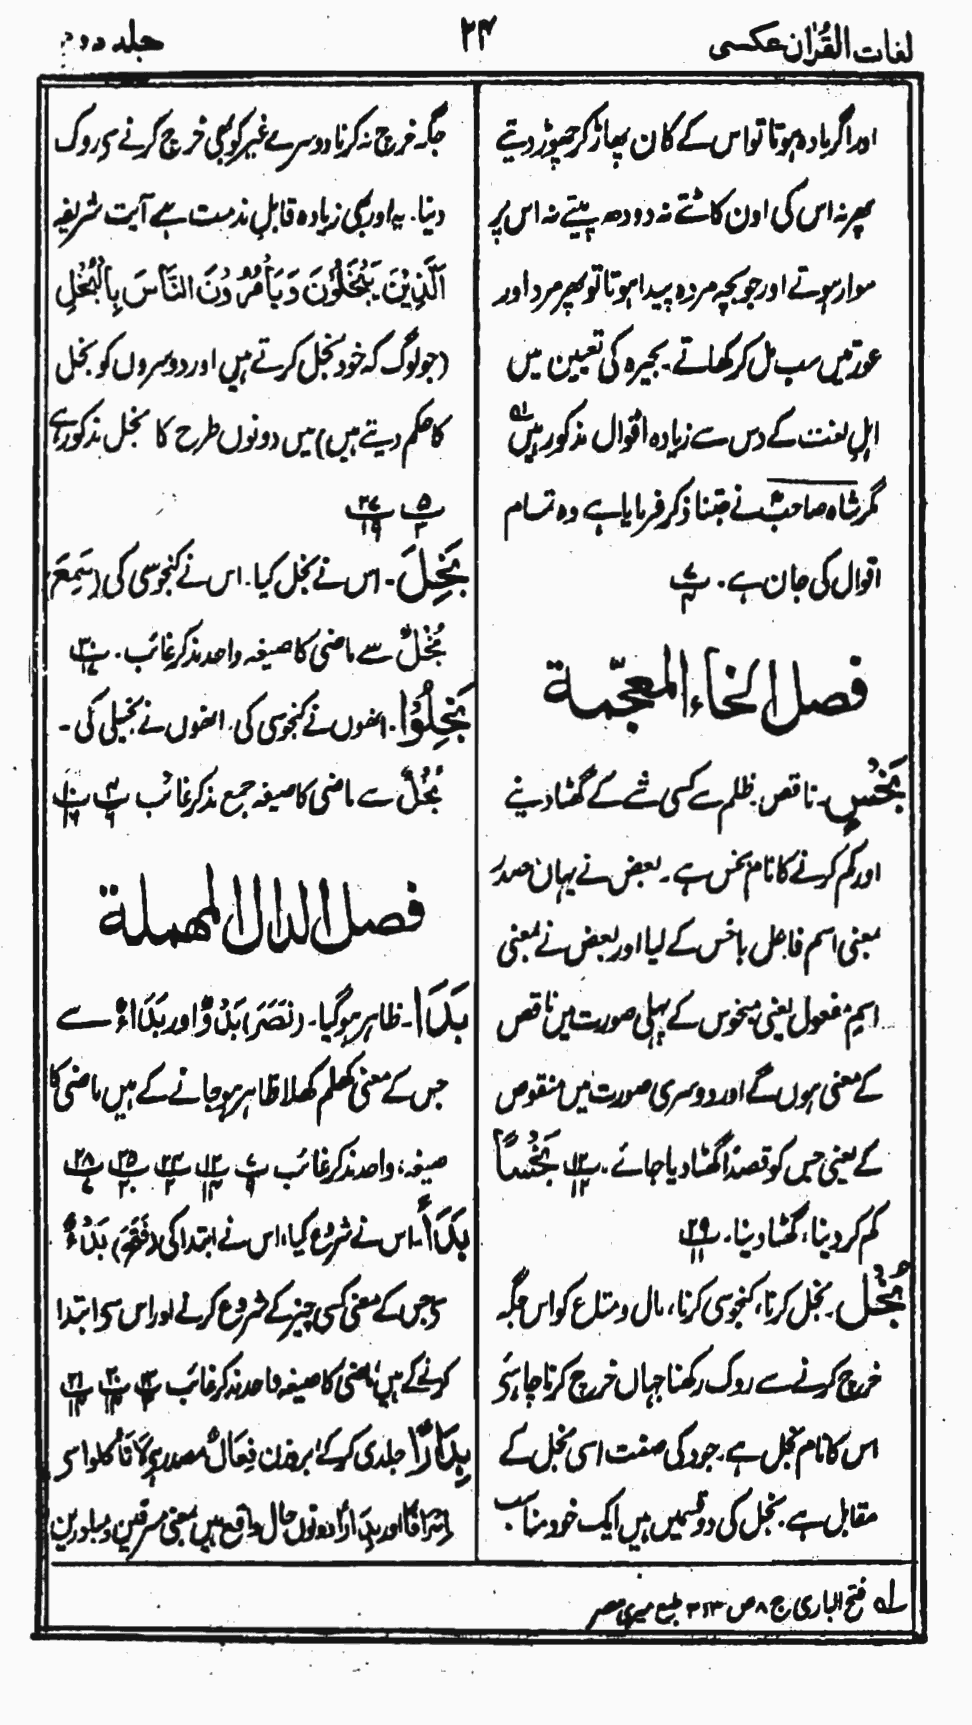 لغات القرآن عکسی
۲۴
جلد دوم
اور اگر مادہ ہوتا تو اس کے کان پھاڑ کر چھوڑ دیتے
پھر نہ اس کی اون کاٹتے نہ دودھ پیتے نہ اس پر
سوار ہوتے اور جو بچہ مردہ پیدا ہوتا تو پھر مرد اور
عورتیں سب مل کر کھاتے۔ بحیرہ کی تعیین میں
اہلِ لغت کے دس سے زیادہ اقوال مذکور ہیں لہ
مگر شاہ صاحبؒ نے جتنا ذکر فرمایا ہے وہ تمام
اقوال کی جان ہے۔ پ۷ ۴
فصل الخاء المعجّمة
بَخْسٍ۔ ناقص۔ ظلم سے کسی شے کے گھٹا دینے
اور کم کرنے کا نام بخس ہے۔ بعض نے یہاں مصدر
بمعنی اسم فاعل باخس کے لیا اور بعض نے بمعنی
اسمِ مفعول یعنی مبخوس کے پہلی صورت میں ناقص
کے معنی ہوں گے اور دوسری صورت میں منقوص
کے یعنی جس کو قصداً گھٹا دیا جائے۔ پ۱۲ ۱۲ بَخْسًا
کم کر دینا، گھٹا دینا۔ پ۲۹ ۱۱
بُخْل۔ بخل کرنا، کنجوسی کرنا، مال و متاع کو اس جگہ
خرچ کرنے سے روک رکھنا جہاں خرچ کرنا چاہئے
اس کا نام بخل ہے۔ جود کی صفت اسی بخل کے
مقابل ہے۔ بخل کی دو قسمیں ہیں ایک خود مناسب
جگہ خرچ نہ کرنا دوسرے غیر کو بھی خرچ کرنے سے روک
دینا۔ یہ اور بھی زیادہ قابلِ مذمت ہے آیت شریفہ
اَلَّذِیْنَ یَبْخَلُوْنَ وَیَاْمُرُوْنَ النَّاسَ بِالْبُخْلِ
(جو لوگ کہ خود بخل کرتے ہیں اور دوسروں کو بخل
کا حکم دیتے ہیں) میں دونوں طرح کا بخل مذکور ہے
پ۵ ۳ پ۲۷ ۱۹
بَخِلَ۔ اس نے بخل کیا۔ اس نے کنجوسی کی (سَمِعَ)
بُخْلٌ سے ماضی کا صیغہ واحد مذکر غائب۔ پ۳۰ ۱۷
بَخِلُوْا۔ انھوں نے کنجوسی کی۔ انھوں نے بخیلی کی۔
بُخْلٌ سے ماضی کا صیغہ جمع مذکر غائب پ۴ ۹ پ۱۰ ۱۶
فصل الدال المهملة
بَدَا۔ ظاہر ہو گیا۔ (نَصَرَ) بَدْوٌ اور بَدَاءٌ سے
جس کے معنی کھلم کھلا ظاہر ہو جانے کے ہیں ماضی کا
صیغہ، واحد مذکر غائب پ۷ ۹ پ۱۲ ۱۴ پ۲۴ ۲ پ۲۵ ۲۰ پ۲۸ ۷
بَدَأَ۔ اس نے شروع کیا، اس نے ابتدا کی (فَتَحَ) بَدْءٌ
سے جس کے معنی کسی چیز کے شروع کرنے اور اس سے ابتدا
کرنے کے ہیں، ماضی کا صیغہ واحد مذکر غائب پ۱۳ ۴ پ۲۰ ۱۴ پ۲۱ ۱۴
بِدَارًا جلدی کر کے بروزن فِعَالٌ مصدر ہے لَا تَأْکُلُوا
اِسْرَافًا اور بِدَارًا دونوں حال واقع ہیں بمعنی مسرفین و مبادرین
لہ فتح الباری ج ۸ ص ۲۱۳ طبع میری مصر